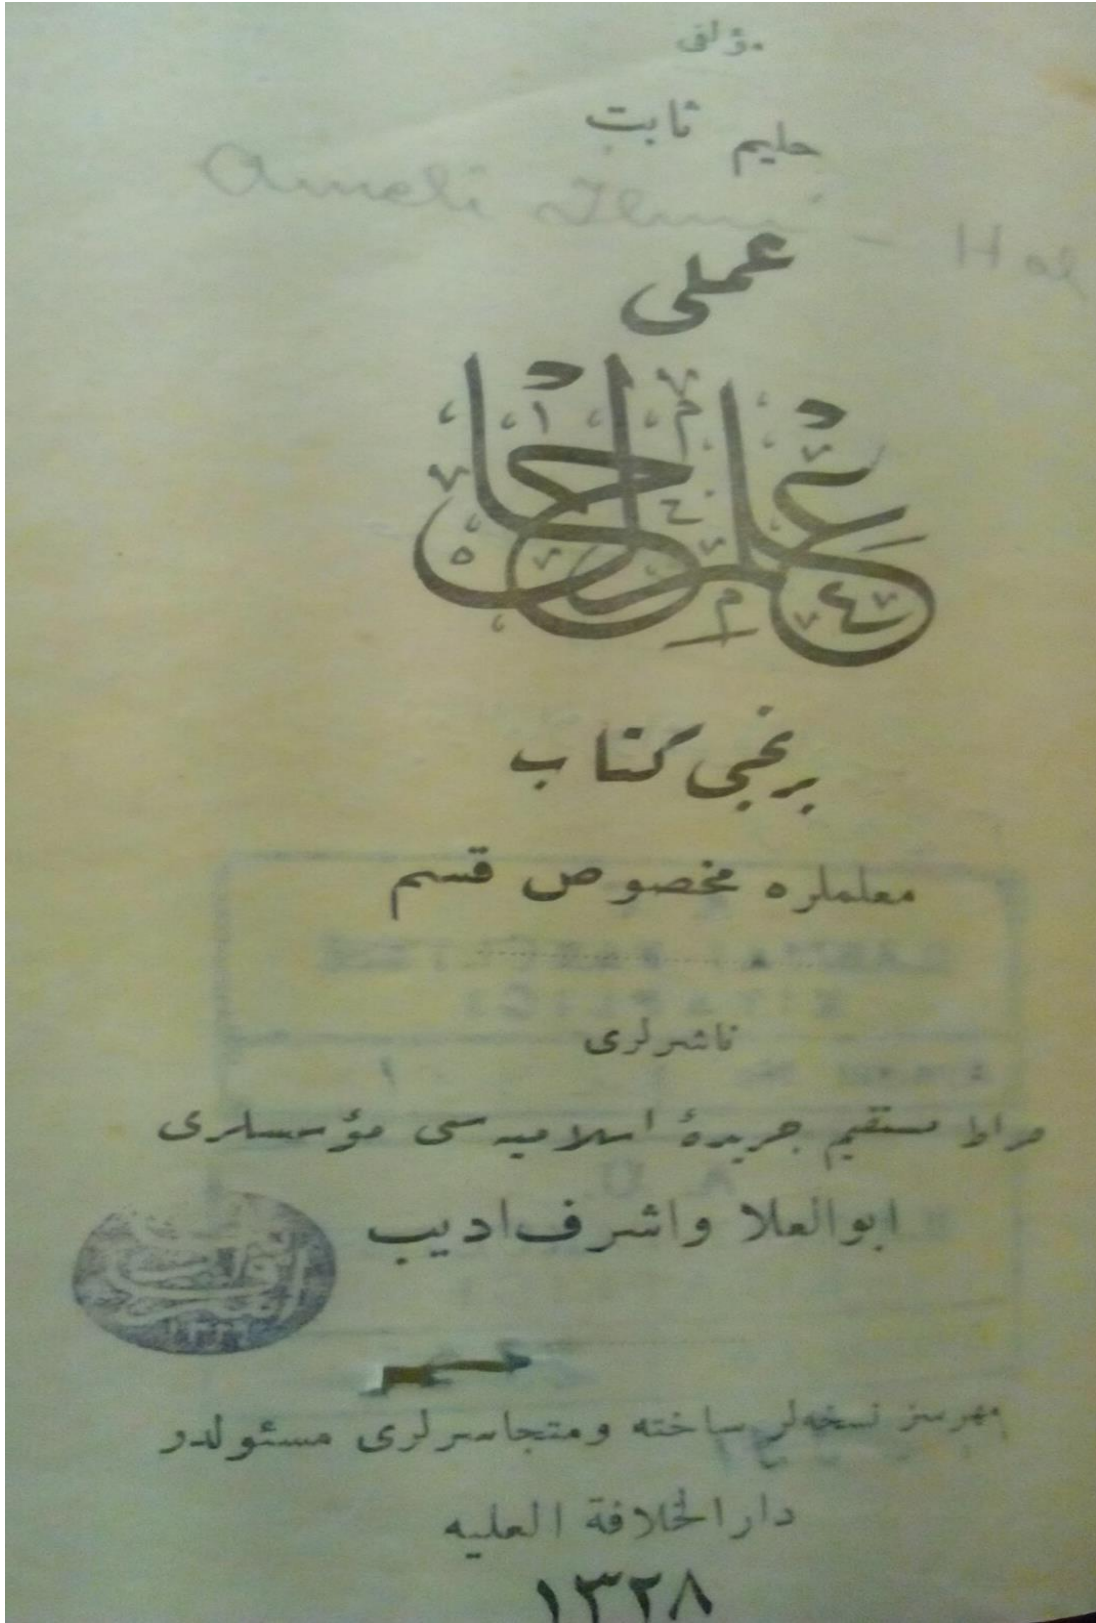 مؤلفى
حليم ثابت
Ameli Ilmi - Hal
عملى
علم حال
برنجى كتاب
معلملره مخصوص قسم
ناشرلرى
صراط مستقيم جريدهٔ اسلاميه سى مؤسسلرى
ابوالعلا واشرف اديب
مهرسز نسخه‌لر ساخته ومتجاسرلرى مسئولدر
دار الخلافة العليه
١٣٢٨